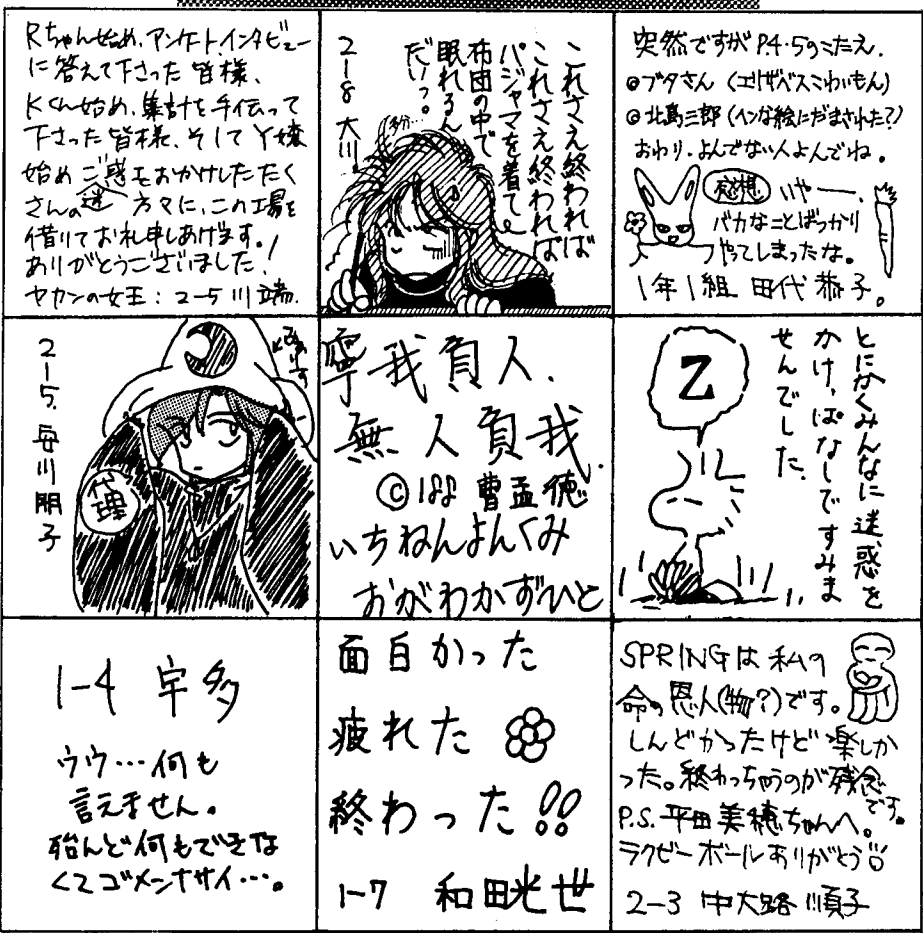 Rちゃん始め、アンケート、インタビュー
に答えて下さった皆様、
Kくん始め、集計を手伝って
下さった皆様、そしてY嬢
始めご迷惑をおかけしたたく
さんの方々に、この場を
借りてお礼申しあげます。!
ありがとうございました!
ヤカンの女王:2-5 川端
これさえ終われば
これさえ終われば
パジャマを着て
布団の中で
眠れるん
だいっ。
2-8 大川
突然ですがP.4・5のこたえ.
◎ブタさん(エリザベスこわいもん)
◎北島三郎(ヘンな絵にだまされた?)
おわり.よんでない人よんでね。
感想 いやー、
バカなことばっかり
やってしまったな。
1年1組 田代恭子。
2-5.毎川朋子
代理
寧我負人.
無人負我.
©188 曹孟徳
いちねんよんくみ
おがわかずひと
とにかくみんなに迷惑を
かけっぱなしですみま
せんでした.
Z
1-4 宇多
ウウ…何も
言えません。
殆んど何もできな
くてゴメンナサイ…。
面白かった
疲れた
終わった!!
1-7 和田光世
SPRINGは私の
命の恩人(物?)です。
しんどかったけど楽しか
った。終わっちゃうのが残念
です。
P.S.平田美穂ちゃんへ。
ラクビーボールありがとう
2-3 中大路順子